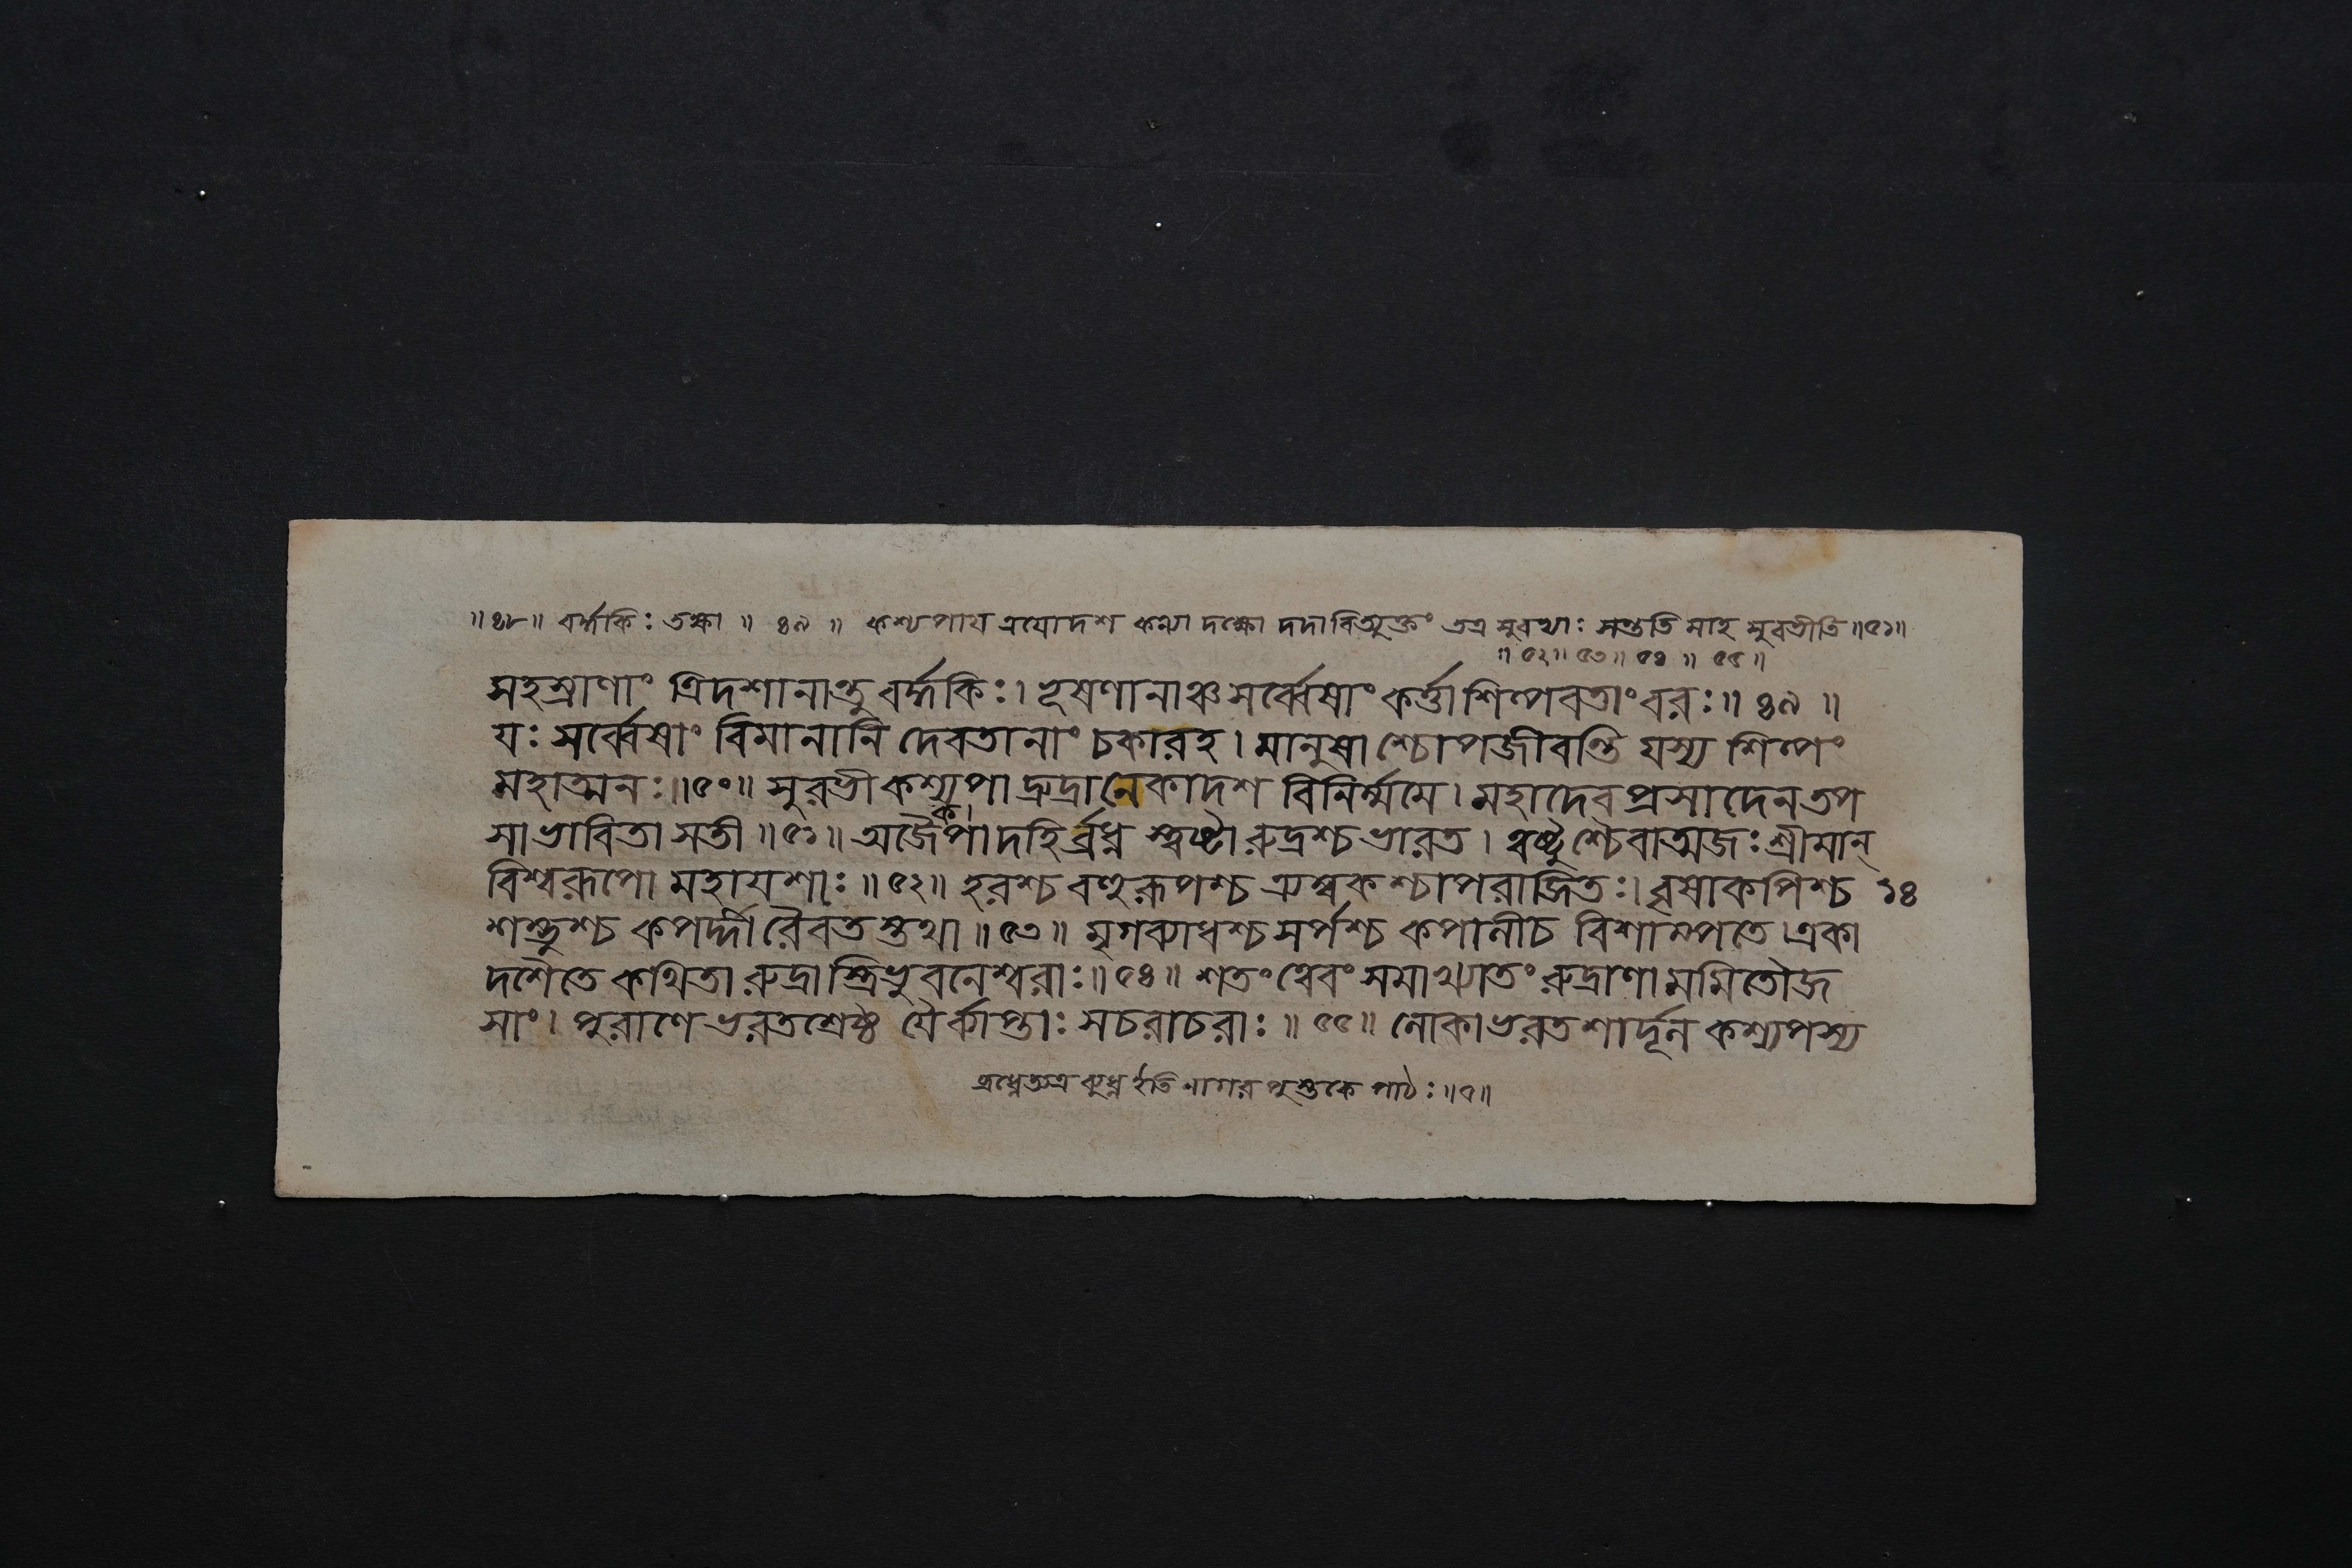 ॥৪৮॥ বর্দ্ধকিঃ তক্ষা ॥ ৪৯ ॥ কশ্যপায ত্রযোদশ কন্যা দক্ষো দদাবিত্যুক্তং তত্র সুরভ্যাঃ সন্ততি মাহ সুরভীতি॥৫১॥
॥ ৫২॥ ৫৩॥ ৫৪ ॥ ৫৫ ॥
সহস্রাণাং ত্রিদশানান্তু বর্দ্ধকিঃ। ভূষণানাঞ্চ সর্ব্বেষাং কর্ত্তা শিল্পবতাং বরঃ॥ ৪৯ ॥
যঃ সর্ব্বেষাং বিমানানি দেবতানাং চকারহ। মানুষাশ্চোপজীবন্তি যস্য শিল্পং
মহাত্মনঃ॥৫০॥ সুরভী কশ্যপাদ্রুদ্রানেকাদশ বিনির্ম্মমে। মহাদেব প্রসাদেন তপ
কা
সা ভাবিতা সতী ॥৫১॥ অজৈপাদহির্ব্রধ্ন স্ত্বষ্টা রুদ্রশ্চ ভারত। ত্বষ্টুশ্চৈবাত্মজঃ শ্রীমান্
বিশ্বরূপো মহাযশাঃ ॥৫২॥ হরশ্চ বহুরূপশ্চ ত্র্যম্বকশ্চাপরাজিতঃ। বৃষাকপিশ্চ ১৪
শম্ভুশ্চ কপর্দ্দী রৈবতস্তথা ॥৫৩॥ মৃগব্যাধশ্চ সর্পশ্চ কপালীচ বিশাম্পতে। একা
দশৈতে কথিতা রুদ্রাস্ত্রিভুবনেশ্বরাঃ॥৫৪॥ শতং ত্বেবং সমাখ্যাতং রুদ্রাণামমিতৌজ
সাং। পুরাণে ভরতশ্রেষ্ঠ যৈর্ব্যাপ্তাঃ সচরাচরাঃ ॥৫৫॥ লোকা ভরতশার্দূল কশ্যপস্য
ব্রধ্নেত্যত্র বুধ্ন ইতি নাগর পুস্তকে পাঠঃ॥